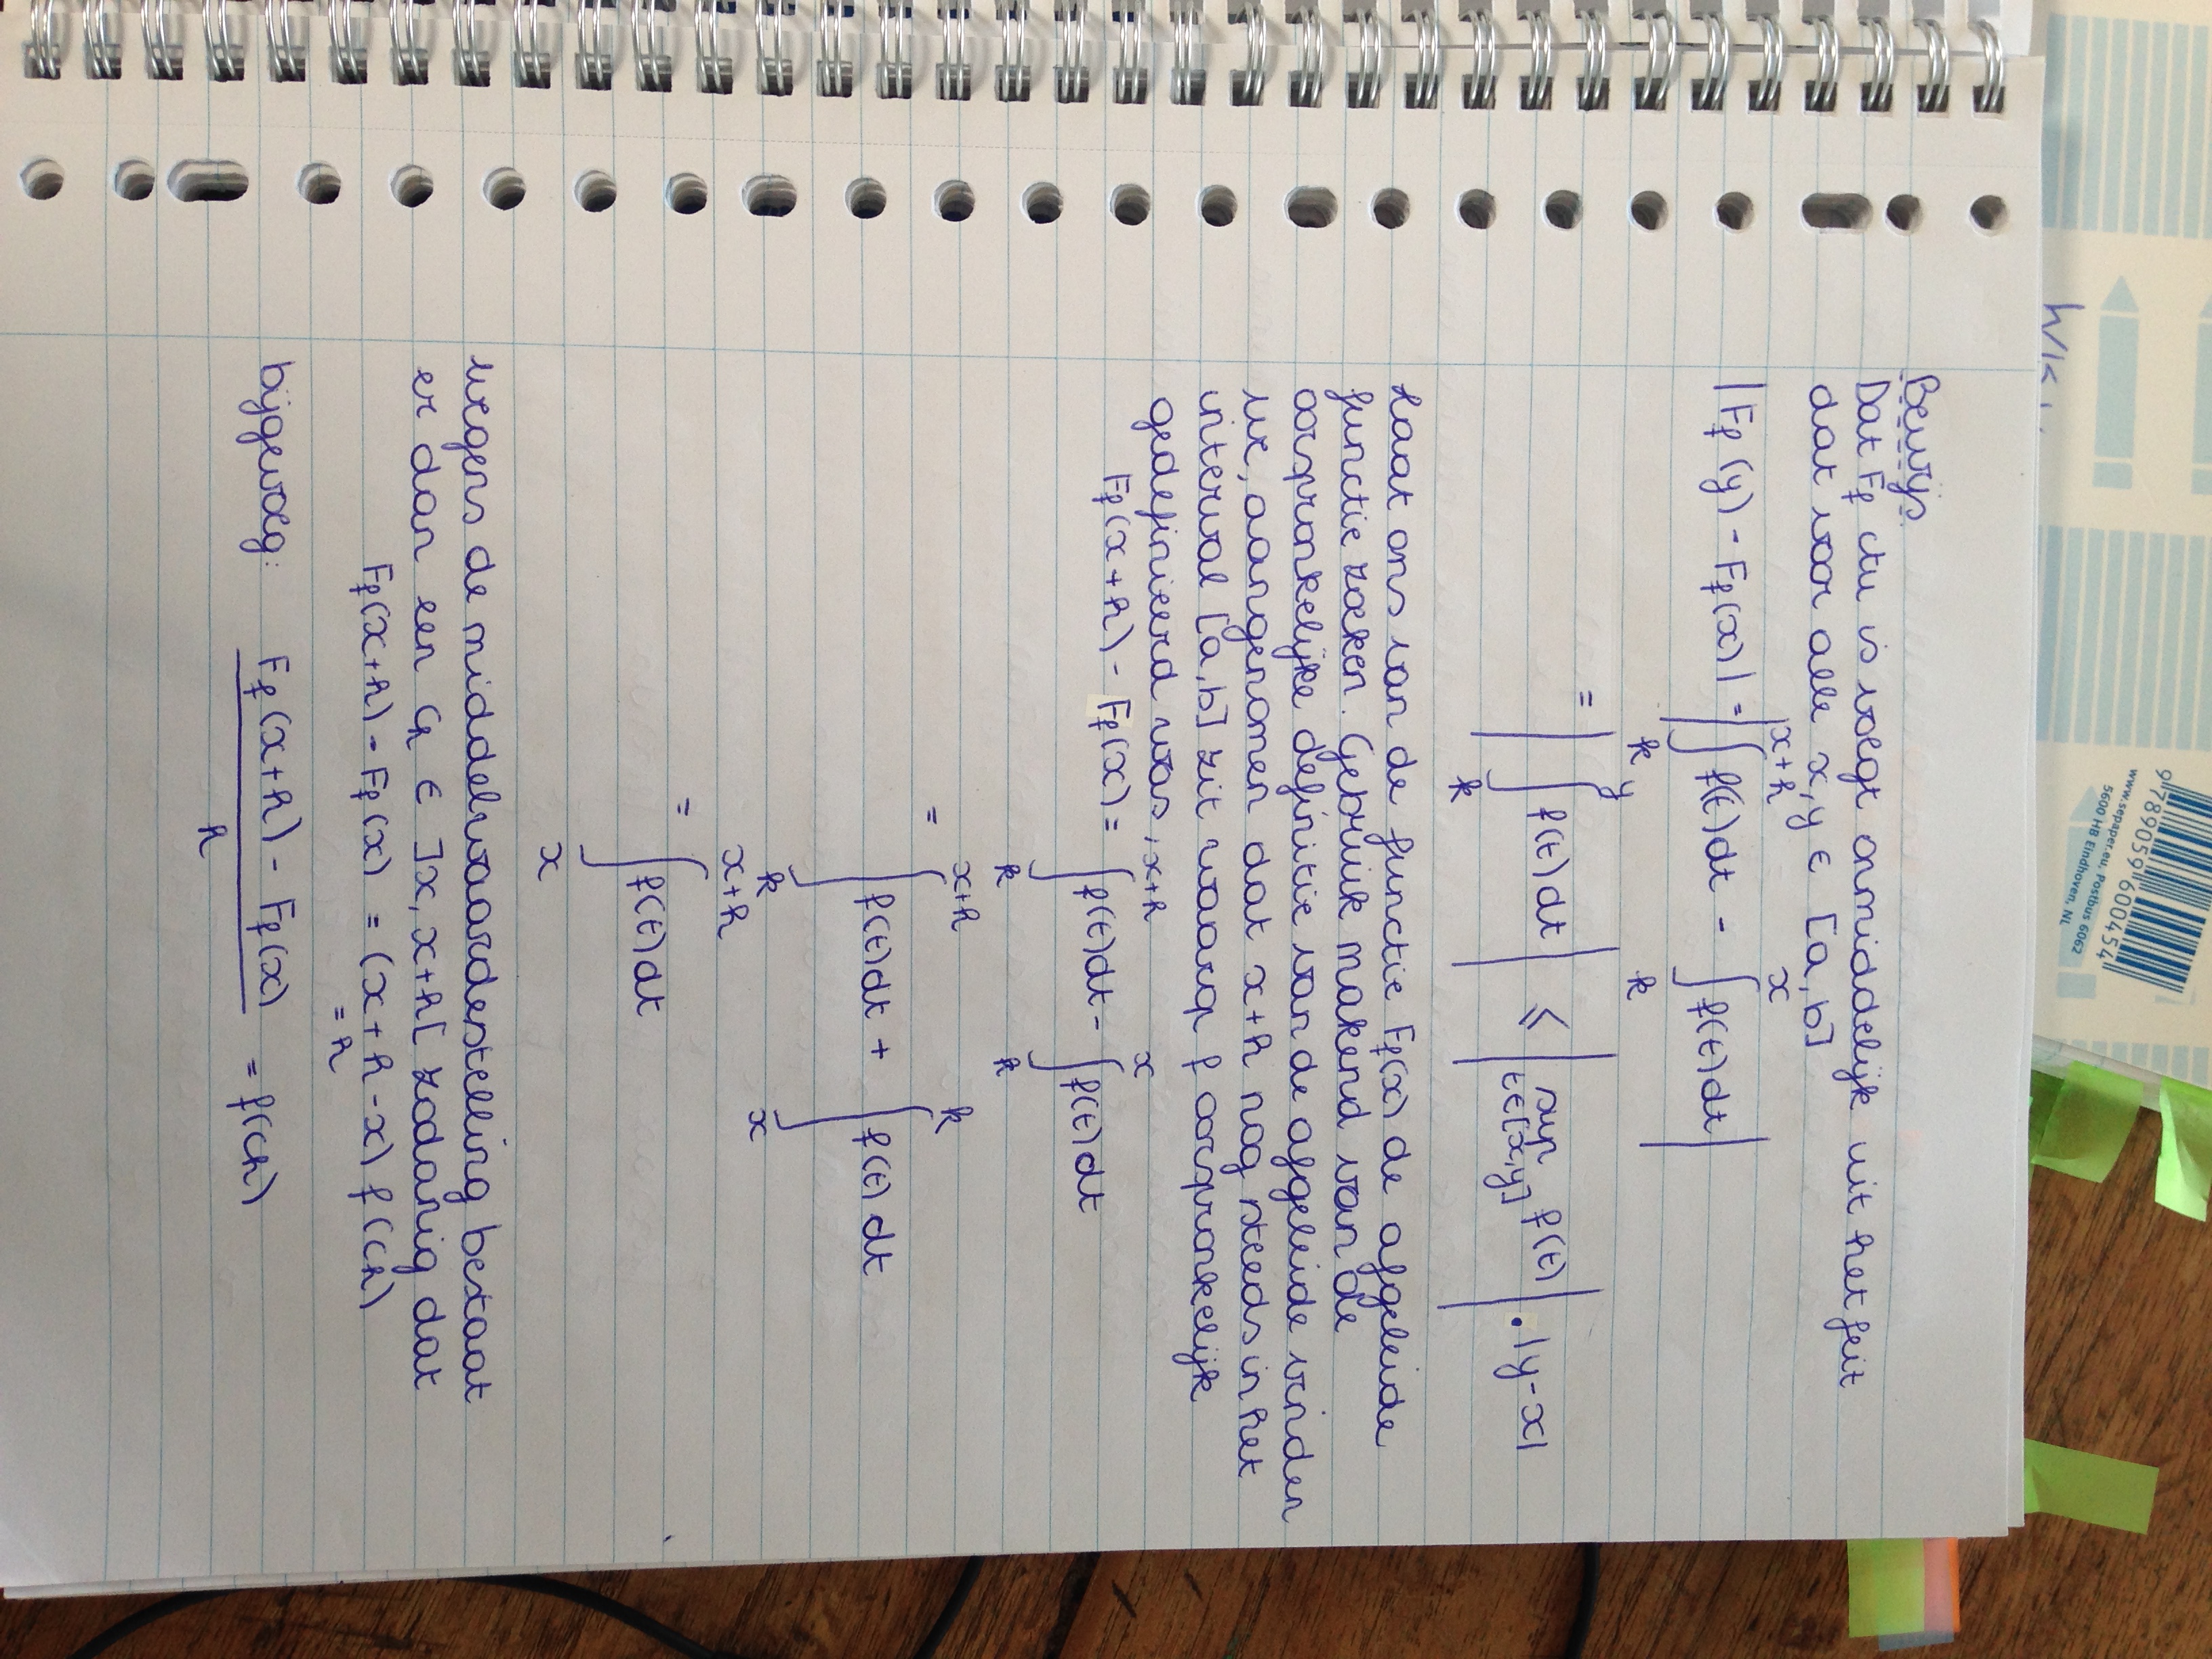 9 789059 600454
www.sepaper.eu, Postbus 6062
5600 HB Eindhoven, NL
Bewijs
Dat F_f ctu is volgt onmiddelijk uit het feit
dat voor alle x, y ∈ [a, b]
|F_f (y) - F_f (x)| = |∫_k^{x+h} f(t) dt - ∫_k^x f(t) dt|
= |∫_k^y f(t) dt| ≤ |sup_{t∈[x,y]} f(t)| . |y-x|
Laat ons van de functie F_f(x) de afgeleide
functie zoeken. Gebruik makend van de
oorspronkelijke definitie van de afgeleide vinden
we, aangenomen dat x+h nog steeds in het
interval [a,b] zit waarop f oorspronkelijk
gedefinieerd was,
F_f (x+h) - F_f (x) = ∫_k^{x+h} f(t) dt - ∫_k^x f(t) dt
= ∫_k^{x+h} f(t) dt + ∫_x^k f(t) dt
= ∫_x^{x+h} f(t) dt
wegens de middelwaardestelling bestaat
er dan een c_h ∈ ]x, x+h[ zodanig dat
F_f (x+h) - F_f (x) = (x+h-x) f(ch)
= h
bijgevolg: (F_f (x+h) - F_f (x)) / h = f(ch)